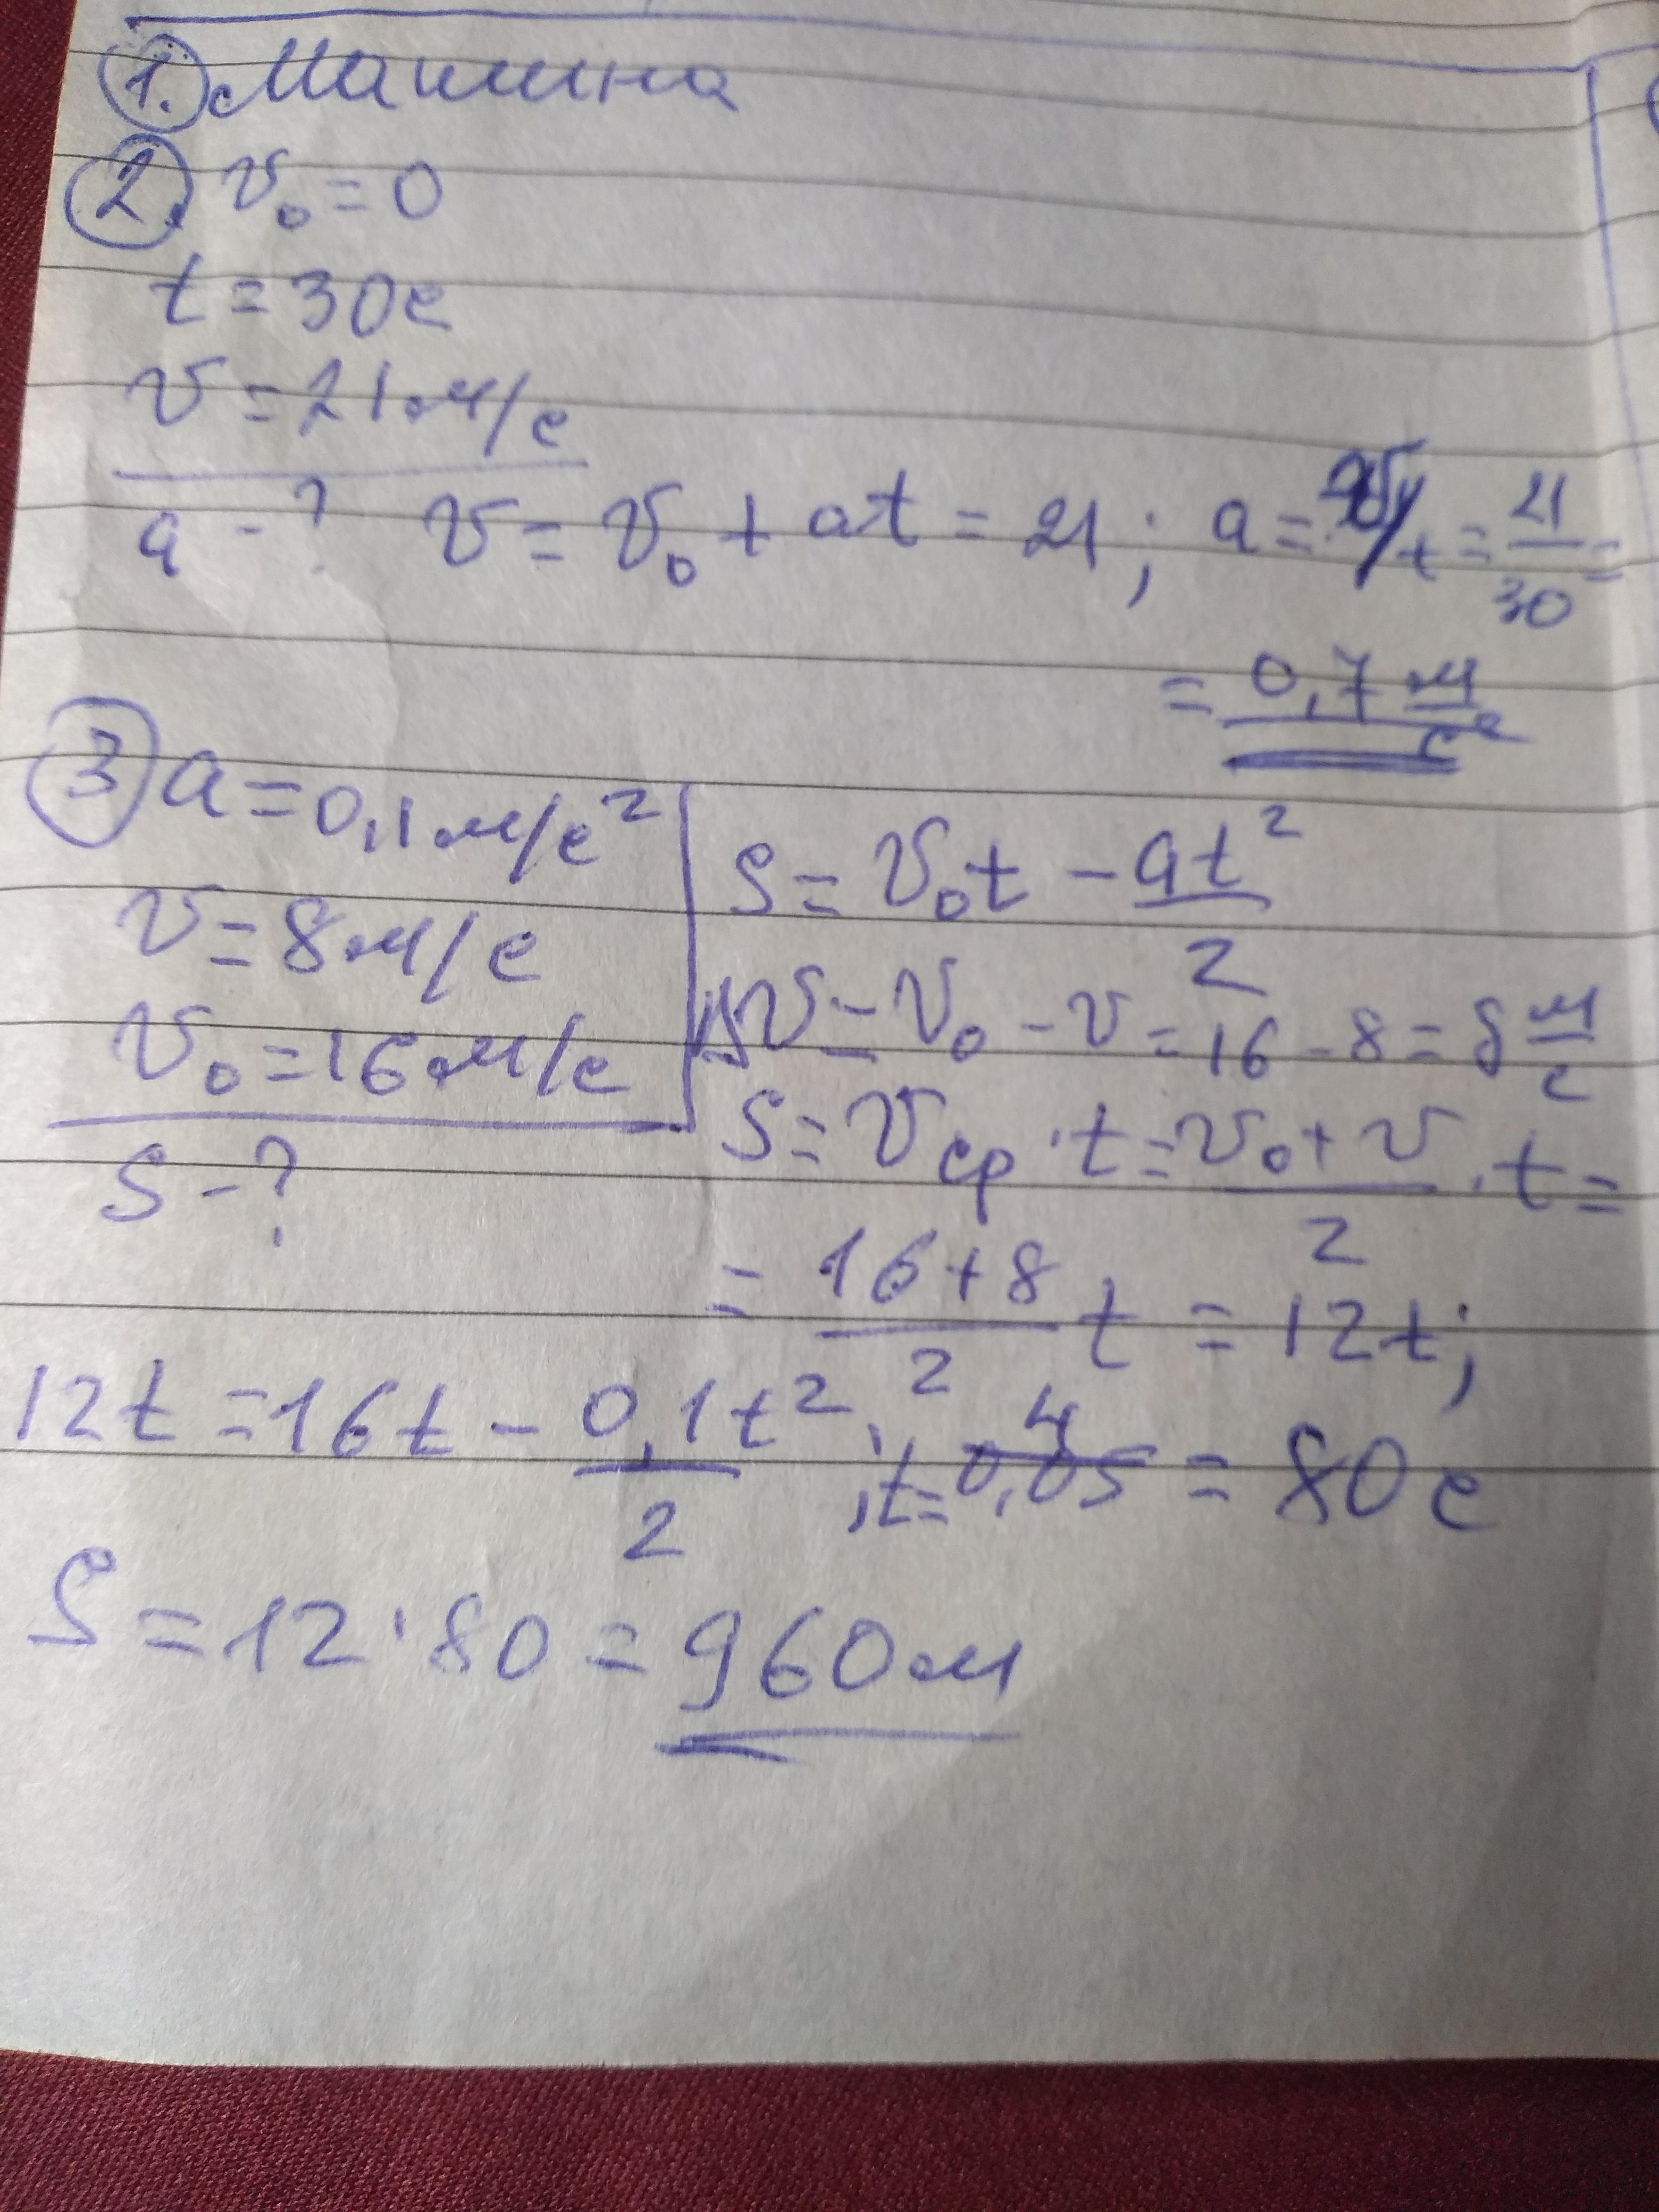 1. Машина
2. v₀ = 0
t = 30с
v = 21 м/с
a - ? v = v₀ + at = 21; a = v/t = 21/30 =
= 0,7 м/с²
3 a = 0,1 м/с²
v = 8 м/с
v₀ = 16 м/с
S - ?
S = v₀t - at²/2
Δv = v₀ - v = 16 - 8 = 8 м/с
S = vср · t = (v₀ + v)/2 · t =
= (16 + 8)/2 t = 12t;
12t = 16t - 0,1t²/2; t = 4/0,05 = 80 с
S = 12 · 80 = 960 м